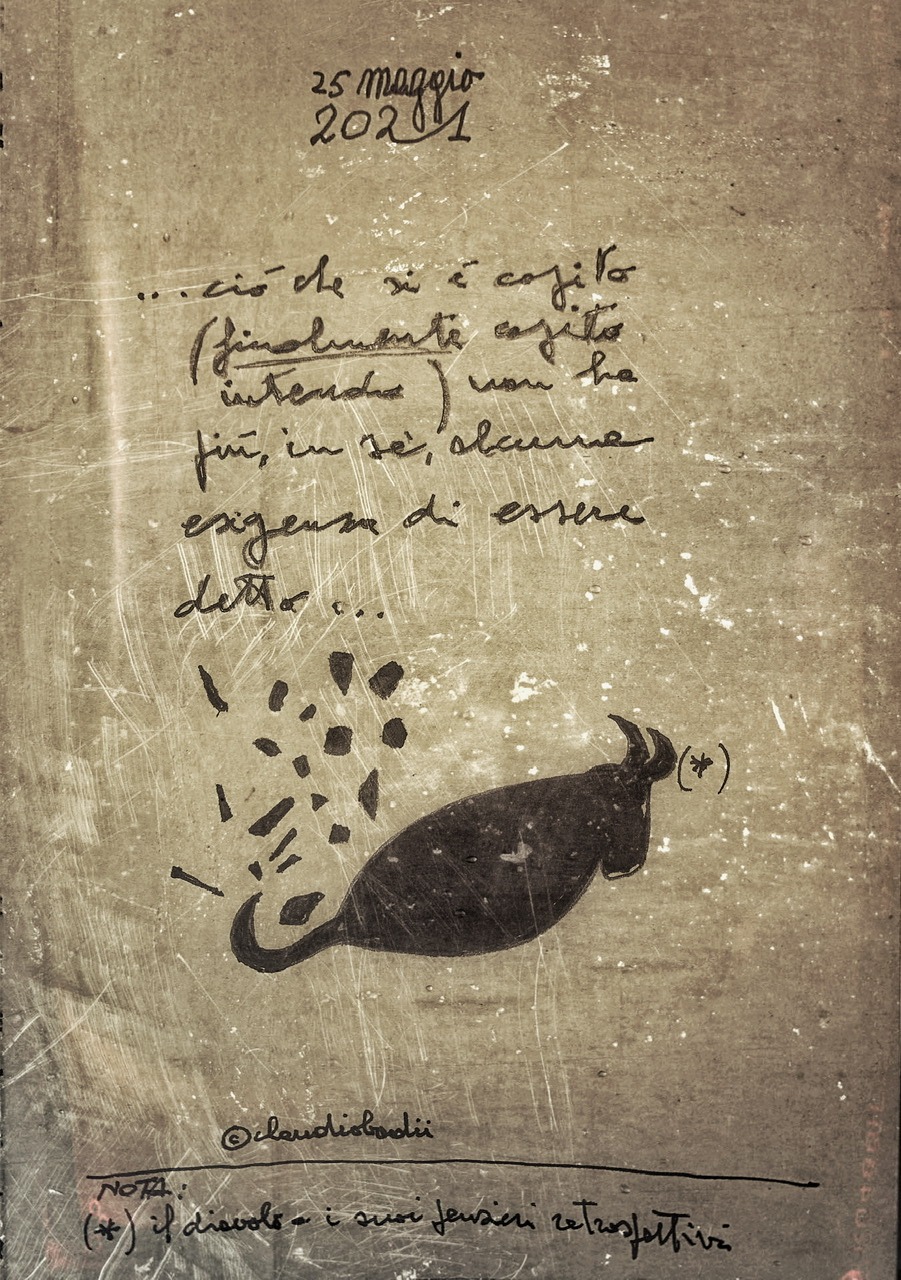 25 maggio
2021
...ciò che si è capito
(finalmente capito
intendo) non ha
più, in sé, alcuna
esigenza di essere
detto...
(*)
©claudiobadii
NOTA:
(*) il diavolo e i suoi pensieri retrospettivi